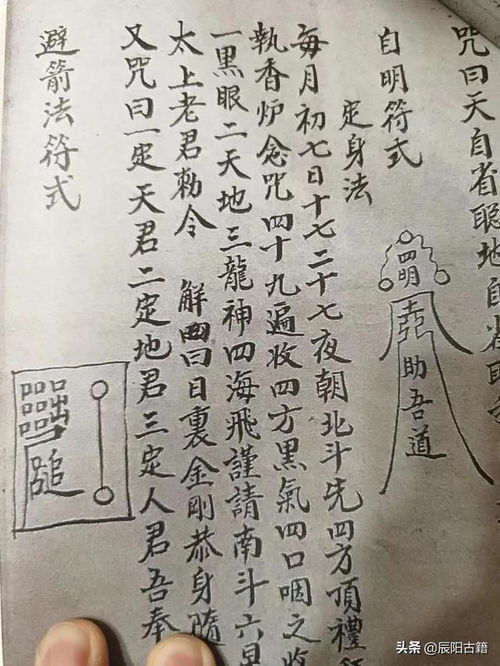 咒曰天自省聪地自
自明符式
助吾道
定身法
每月初七日十七二十七夜朝北斗先四方頂禮
執香炉念咒四十九遍收四方黑氣四口咽之收
一黑眼二天地三龍神四海飛謹請南斗六星
太上老君勅令
解曰日裏金剛恭身隨
又咒曰一定天君二定地君三定人君吾奉
避箭法符式
头条 @辰阳古籍